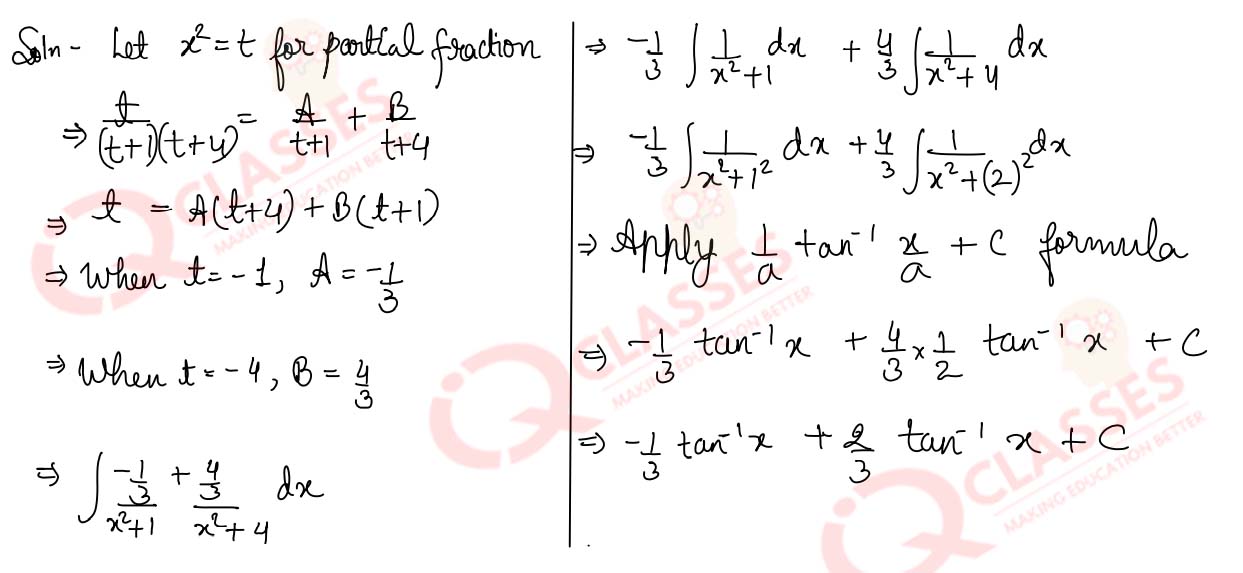 Soln - Let x² = t for partial fraction
⇒ t/((t+1)(t+4)) = A/(t+1) + B/(t+4)
⇒ t = A(t+4) + B(t+1)
⇒ When t = -1, A = -1/3
⇒ When t = -4, B = 4/3
⇒ ∫ (-1/3)/(x²+1) + (4/3)/(x²+4) dx
⇒ -1/3 ∫ 1/(x²+1) dx + 4/3 ∫ 1/(x²+4) dx
⇒ -1/3 ∫ 1/(x²+1²) dx + 4/3 ∫ 1/(x²+(2)²) dx
⇒ Apply 1/a tan⁻¹ x/a + C formula
⇒ -1/3 tan⁻¹ x + 4/3 × 1/2 tan⁻¹ x + C
⇒ -1/3 tan⁻¹ x + 2/3 tan⁻¹ x + C
IQ CLASSES
MAKING EDUCATION BETTER
IQ CLASSES
MAKING EDUCATION BETTER
IQ CLASSES
MAKING EDUCATION BETTER